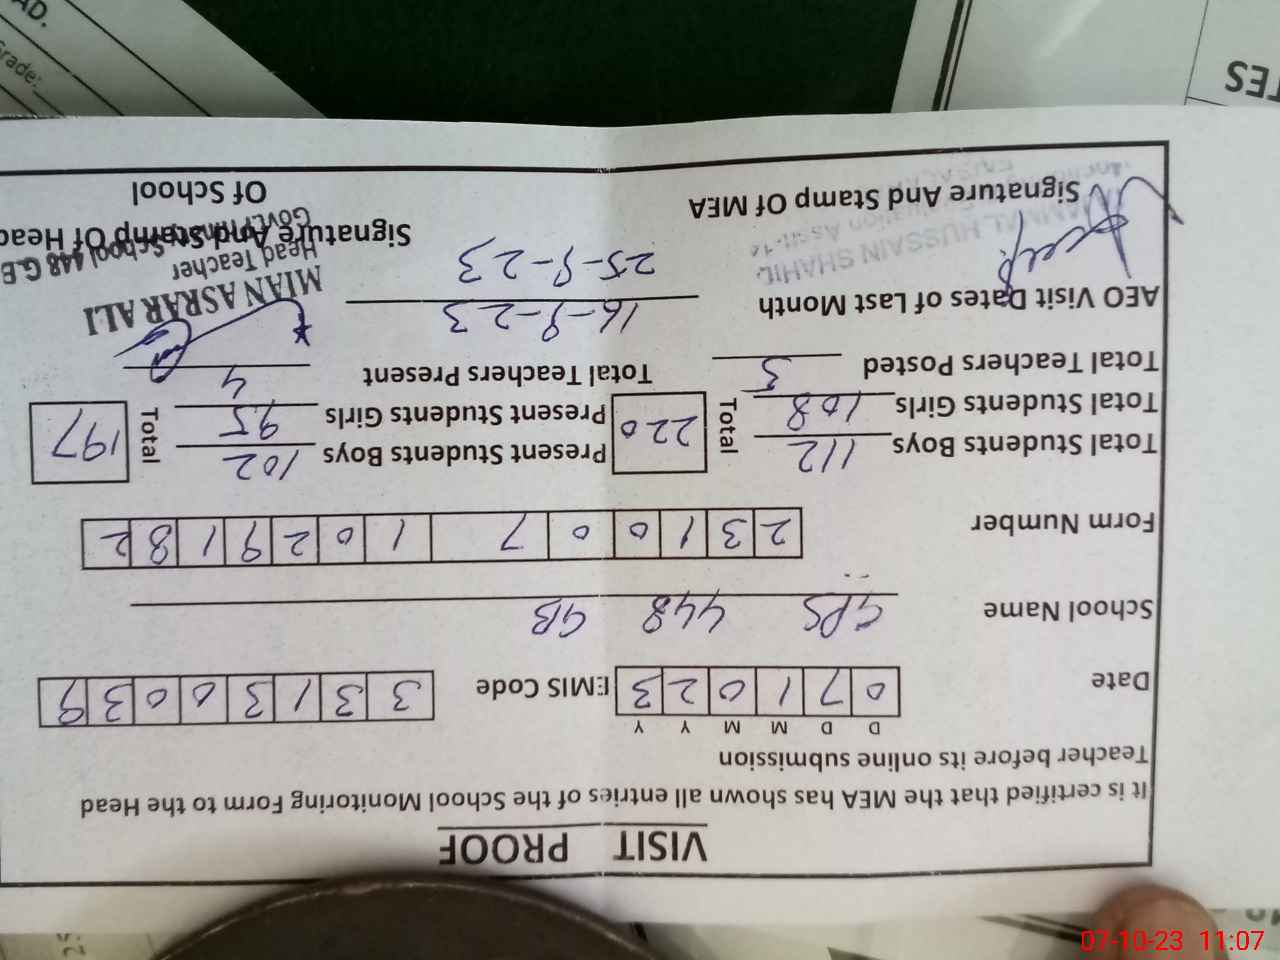 VISIT PROOF
It is certified that the MEA has shown all entries of the School Monitoring Form to the Head
Teacher before its online submission
D D M M Y Y
Date 0 7 1 0 2 3 EMIS Code 3 3 1 3 0 0 3 9
School Name GPS 448 GB
Form Number 2 3 1 0 0 7 1 0 2 9 1 8 2
Total Students Boys 112 Total 220 Present Students Boys 102 Total 197
Total Students Girls 108 Present Students Girls 95
Total Teachers Posted 5 Total Teachers Present 4
AEO Visit Dates of Last Month 16-9-23
25-9-23
MIAN ASRAR ALI
Head Teacher
School 448 G.B
Signature And Stamp Of MEA
HUSSAIN SHAHID
Signature And Stamp Of Head
Of School
TES
AD.
Grade:
07-10-23 11:07